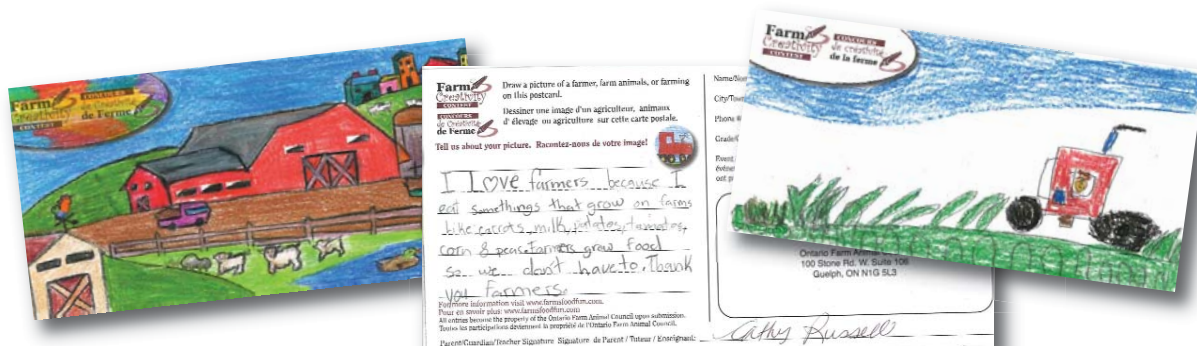 Farm
Creativity
CONTEST
CONCOURS
de Créativité
de Ferme
Farm
Creativity
CONTEST
CONCOURS
de Créativité
de Ferme
Draw a picture of a farmer, farm animals, or farming
on this postcard.
Dessiner une image d'un agriculteur, animaux
d' élevage ou agriculture sur cette carte postale.
Tell us about your picture. Racontez-nous de votre image!
I Love farmers because I
eat somethings that grow on farms
Like carrots, milk, potatos, tomatos,
corn & peas. Farmers grow food
so we don't have to. Thank
you farmers.
For more information visit www.farmsfoodfun.com.
Pour en savoir plus: www.farmsfoodfun.com
All entries become the property of the Ontario Farm Animal Council upon submission.
Toutes les participations deviennent la propriété de l'Ontario Farm Animal Council.
Parent/Guardian/Teacher Signature Signature de Parent / Tuteur / Enseignant:
Cathy Russell
Name/Nom
City/Town
Phone #
Grade/
Event
Ontario Farm Animal
100 Stone Rd. W. Suite 106
Guelph, ON N1G 5L3
Farm
Creativity
CONTEST
CONCOURS
de créativité
de la ferme